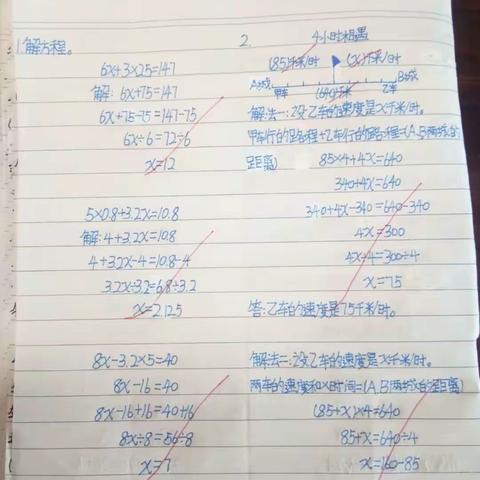 1.解方程。
6x+3×25=147
解:6x+75=147
6x+75-75=147-75
6x÷6=72÷6
x=12
5×0.8+3.2x=10.8
解:4+3.2x=10.8
4+3.2x-4=10.8-4
3.2x÷3.2=6.8÷3.2
x=2.125
8x-3.2×5=40
8x-16=40
8x-16+16=40+16
8x÷8=56÷8
x=7
2.
4小时相遇
(85)千米/时 (x)千米/时
A城 B城
甲车 (640)千米 乙车
解法一:设乙车的速度是x千米/时。
甲车行的路程+乙车行的路程=(A、B两城的
距离)
85×4+4x=640
340+4x=640
340+4x-340=640-340
4x=300
4x÷4=300÷4
x=75
答:乙车的速度是75千米/时。
解法二:设乙车的速度是x千米/时。
两车的速度和×时间=(A、B两城的距离)
(85+x)×4=640
85+x=640÷4
x=160-85